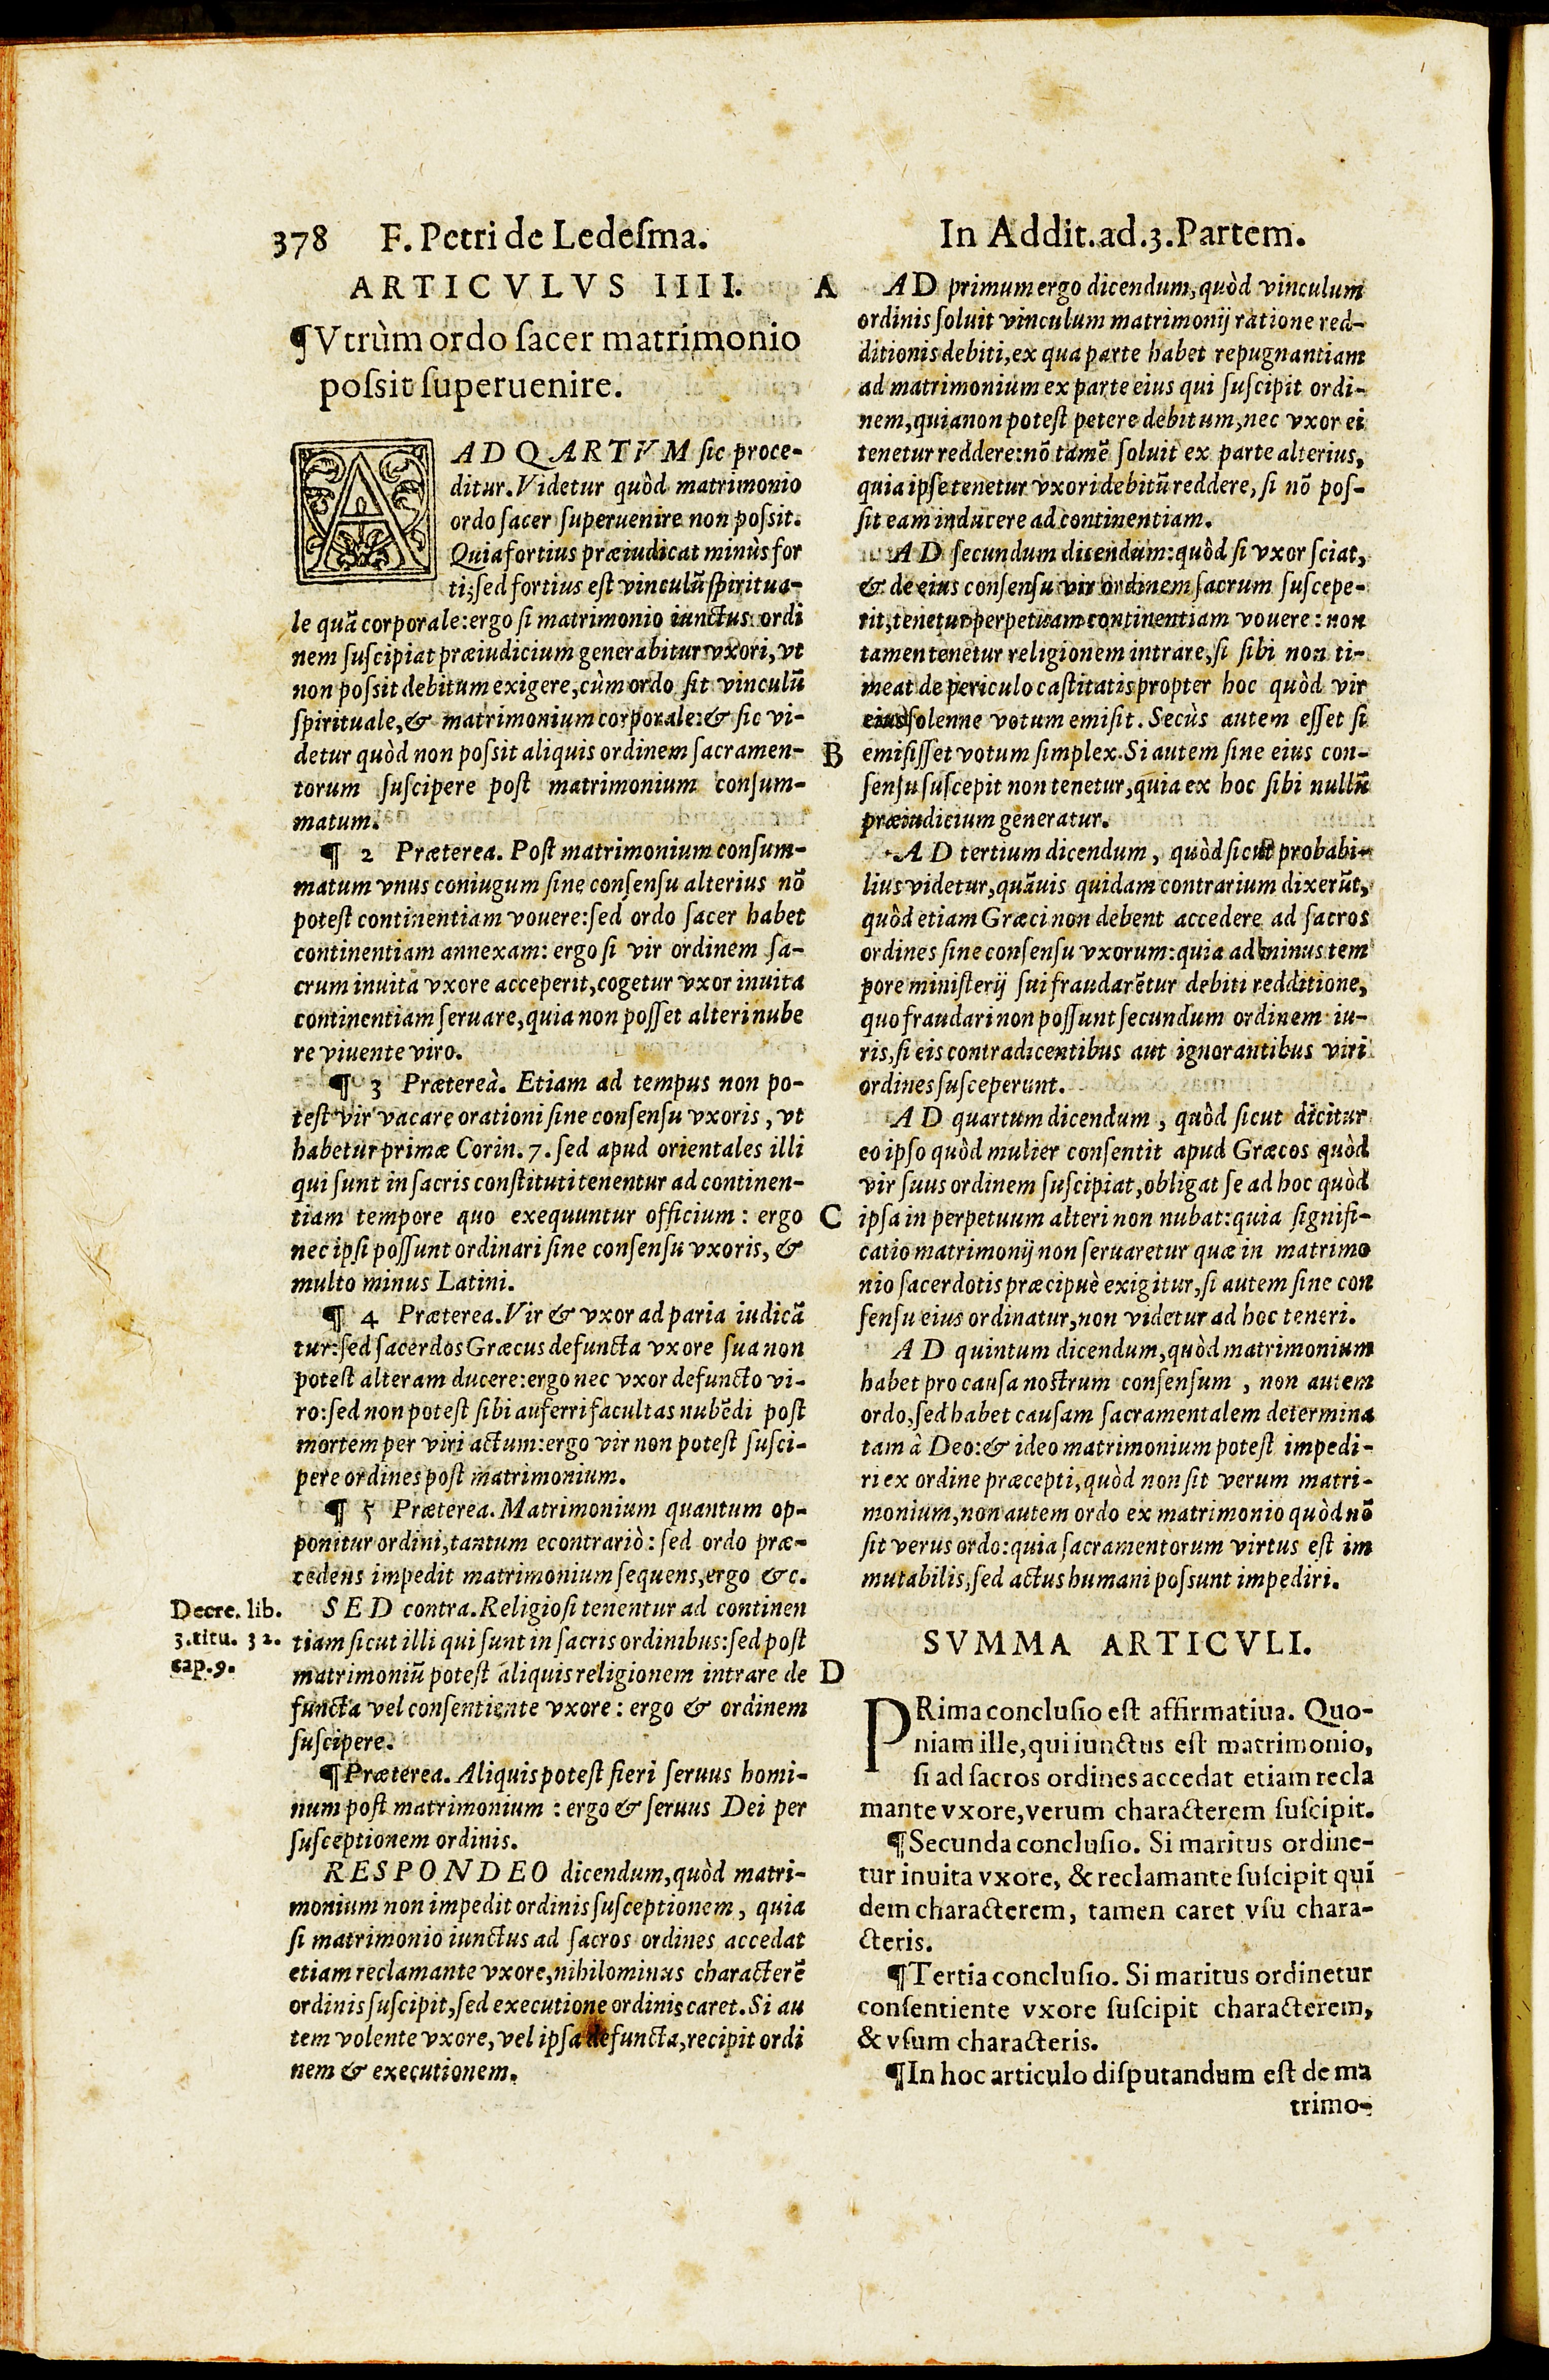 378 F. Petri de Ledeſma.
ARTICVLVS IIII.
¶Vtrùm ordo ſacer matrimonio
poſsit ſuperuenire.
AD QARTVM ſic proce-
ditur. Videtur quòd matrimonio
ordo ſacer ſuperuenire non poſsit.
Quia fortius præiudicat minùs for
ti; ſed fortius eſt vinculũ ſpiritua-
le quã corporale: ergo ſi matrimonio iunctus ordi
nem ſuſcipiat præiudicium generabitur vxori, vt
non poſsit debitum exigere, cùm ordo ſit vinculũ
ſpirituale, & matrimonium corporale: & ſic vi-
detur quòd non poſsit aliquis ordinem ſacramen-
torum ſuſcipere poſt matrimonium conſum-
matum.
¶ 2 Præterea. Poſt matrimonium conſum-
matum vnus coniugum ſine conſenſu alterius nõ
poteſt continentiam vouere: ſed ordo ſacer habet
continentiam annexam: ergo ſi vir ordinem ſa-
crum inuita vxore acceperit, cogetur vxor inuita
continentiam ſeruare, quia non poſſet alteri nube
re viuente viro.
¶ 3 Præterea. Etiam ad tempus non po-
teſt vir vacare orationi ſine conſenſu vxoris, vt
habetur primæ Corin. 7. ſed apud orientales illi
qui ſunt in ſacris conſtituti tenentur ad continen-
tiam tempore quo exequuntur officium: ergo
nec ipſi poſſunt ordinari ſine conſenſu vxoris, &
multo minus Latini.
¶ 4 Præterea. Vir & vxor ad paria iudicã
tur: ſed ſacerdos Græcus defuncta vxore ſua non
poteſt alteram ducere: ergo nec vxor defuncto vi-
ro: ſed non poteſt ſibi auferri facultas nubẽdi poſt
mortem per viri actum: ergo vir non poteſt ſuſci-
pere ordines poſt matrimonium.
¶ 5 Præterea. Matrimonium quantum op-
ponitur ordini, tantum econtrariò: ſed ordo præ-
cedens impedit matrimonium ſequens, ergo &c.
Decre. lib.
3. titu. 32.
cap. 9.
SED contra. Religioſi tenentur ad continen
tiam ſicut illi qui ſunt in ſacris ordinibus: ſed poſt
matrimoniũ poteſt aliquis religionem intrare de
functa vel conſentiente vxore: ergo & ordinem
ſuſcipere.
¶Præterea. Aliquis poteſt fieri ſeruus homi-
num poſt matrimonium: ergo & ſeruus Dei per
ſuſceptionem ordinis.
RESPONDEO dicendum, quòd matri-
monium non impedit ordinis ſuſceptionem, quia
ſi matrimonio iunctus ad ſacros ordines accedat
etiam reclamante vxore, nihilominus characterẽ
ordinis ſuſcipit, ſed executione ordinis caret. Si au
tem volente vxore, vel ipſa defuncta, recipit ordi
nem & executionem.
A
B
C
D
In Addit. ad. 3. Partem.
AD primum ergo dicendum, quòd vinculum
ordinis ſoluit vinculum matrimonij ratione red-
ditionis debiti, ex qua parte habet repugnantiam
ad matrimonium ex parte eius qui ſuſcipit ordi-
nem, quia non poteſt petere debitum, nec vxor ei
tenetur reddere: nõ tamẽ ſoluit ex parte alterius,
quia ipſe tenetur vxori debitũ reddere, ſi nõ poſ-
ſit eam inducere ad continentiam.
AD ſecundum dicendum: quòd ſi vxor ſciat,
& de eius conſenſu vir ordinem ſacrum ſuſcepe-
rit, tenetur perpetuam continentiam vouere: non
tamen tenetur religionem intrare, ſi ſibi non ti-
meat de periculo caſtitatis propter hoc quòd vir
eius ſolenne votum emiſit. Secùs autem eſſet ſi
emiſiſſet votum ſimplex. Si autem ſine eius con-
ſenſu ſuſcepit non tenetur, quia ex hoc ſibi nullũ
præiudicium generatur.
AD tertium dicendum, quòd ſicut probabi-
lius videtur, quãuis quidam contrarium dixerũt,
quòd etiam Græci non debent accedere ad ſacros
ordines ſine conſenſu vxorum: quia ad minus tem
pore miniſterij ſui fraudarẽtur debiti redditione,
quo fraudari non poſſunt ſecundum ordinem iu-
ris, ſi eis contradicentibus aut ignorantibus viri
ordines ſuſceperunt.
AD quartum dicendum, quòd ſicut dicitur
eo ipſo quòd mulier conſentit apud Græcos quòd
vir ſuus ordinem ſuſcipiat, obligat ſe ad hoc quòd
ipſa in perpetuum alteri non nubat: quia ſignifi-
catio matrimonij non ſeruaretur quæ in matrimo
nio ſacerdotis præcipuè exigitur, ſi autem ſine con
ſenſu eius ordinatur, non videtur ad hoc teneri.
AD quintum dicendum, quòd matrimonium
habet pro cauſa noſtrum conſenſum, non autem
ordo, ſed habet cauſam ſacramentalem determina
tam à Deo: & ideo matrimonium poteſt impedi-
ri ex ordine præcepti, quòd non ſit verum matri-
monium, non autem ordo ex matrimonio quòd nõ
ſit verus ordo: quia ſacramentorum virtus eſt im
mutabilis, ſed actus humani poſsunt impediri.
SVMMA ARTICVLI.
PRima concluſio eſt affirmatiua. Quo-
niam ille, qui iunctus eſt matrimonio,
ſi ad ſacros ordines accedat etiam recla
mante vxore, verum characterem ſuſcipit.
¶Secunda concluſio. Si maritus ordine-
tur inuita vxore, & reclamante ſuſcipit quĩ
dem characterem, tamen caret vſu chara-
cteris.
¶Tertia concluſio. Si maritus ordinetur
conſentiente vxore ſuſcipit characterem,
& vſum characteris.
¶In hoc articulo diſputandum eſt de ma
trimo-